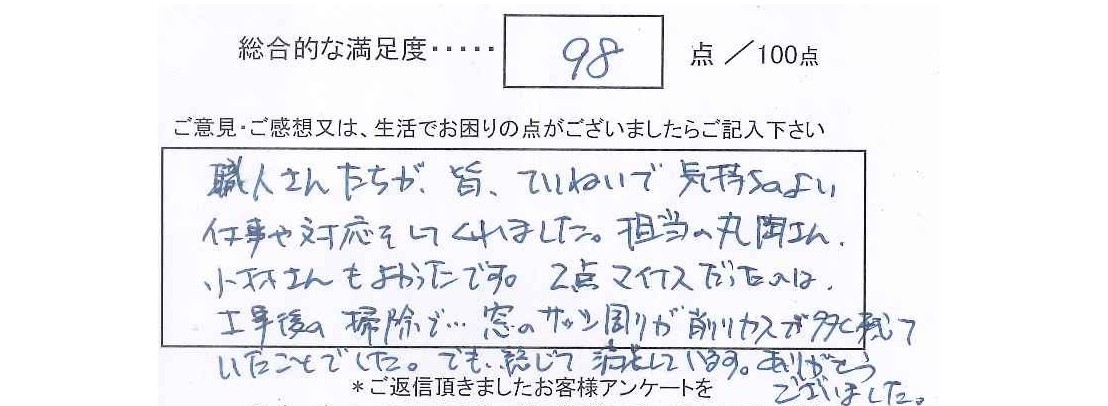 総合的な満足度・・・・・ 98 点 ／100点
ご意見・ご感想又は、生活でお困りの点がございましたらご記入下さい
職人さんたちが、皆、ていねいで 気持ちのよい
仕事や対応をしてくれました。担当の丸岡さん、
小林さんもよかったです。2点マイナスだったのは、
工事後の 掃除で… 窓のサッシ周りが削りカスが多く残って
いたことでした。でも、総じて 満足しています。ありがとう
ございました。
＊ご返信頂きましたお客様アンケートを